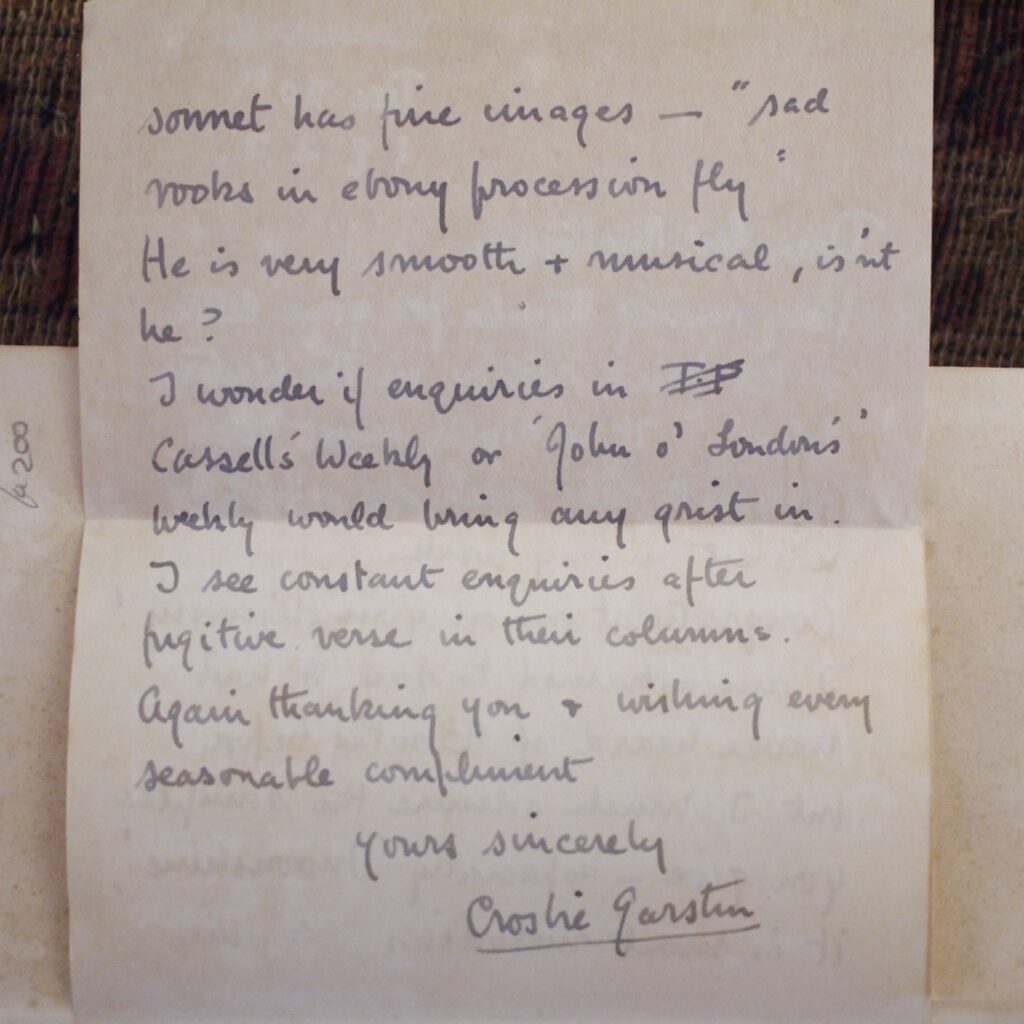 sonnet has fine images — "sad
rooks in ebony procession fly"
He is very smooth + musical, isn't
he?
I wonder if enquiries in T.P
Cassell's Weekly or 'John o' London's'
weekly would bring any grist in.
I see constant enquiries after
fugitive verse in their columns.
Again thanking you + wishing every
seasonable compliment
yours sincerely
Crosbie Garstin